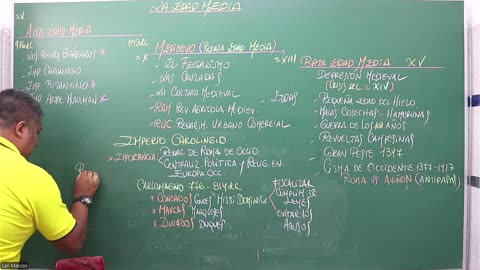 LA EDAD MEDIA
V
ALTA EDAD MEDIA
476 D.C
- LOS REINOS BÁRBAROS *
- IMP. CAROLINGIO
- IMP. BIZANTINO *
- IMP. ARABE MUSULMAN *
X
MEDIOEVO (PLENA EDAD MEDIA)
- EL FEUDALISMO
- LAS CRUZADAS
- LA CULTURA MEDIEVAL
- RAM REV. AGRICOLA MEDIEV.
- RUC- RENACIM. URBANO COMERCIAL
XIII
BAJA EDAD MEDIA XV
DEPRESIÓN MEDIEVAL
(CRISIS DEL S = XIV)
- PEQUEÑA EDAD DEL HIELO
- MALAS COSECHAS - HAMBRUNAS
- GUERRA DE LOS 100 AÑOS
- REVUELTAS CAMPESINAS
- GRAN PESTE 1347
- CISMA DE OCCIDENTE 1347-1417
ROMA VS AVIÑON (ANTIPAPA)
IMPERIO CAROLINGIO
* IMPORTANCIA
- RENAC DE ROMA DE OCCID
- CENTRALIZ. POLÍTICA Y RELIG. EN
EUROPA OCC
CARLOMAGNO
* CONDADOS CONDES
* MARCAS MARQUESES
* DUCADOS DUQUES
MISSI DOMINICI
FISCALIZAR
CUMPLIM. DE
LEYES
EVITAR LOS
ABUSOS
San Marcos